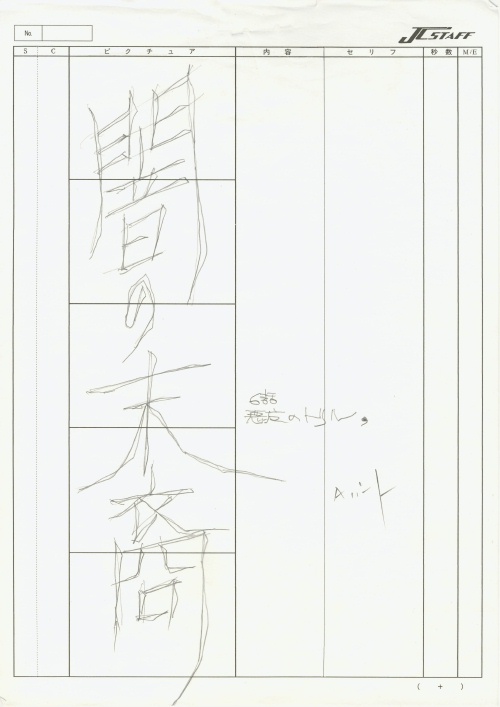 No.
JC STAFF
S C ピクチュア 内容 セリフ 秒数 M/E
闇の末裔
6話
悪魔のトリル。
Aパート
( + )